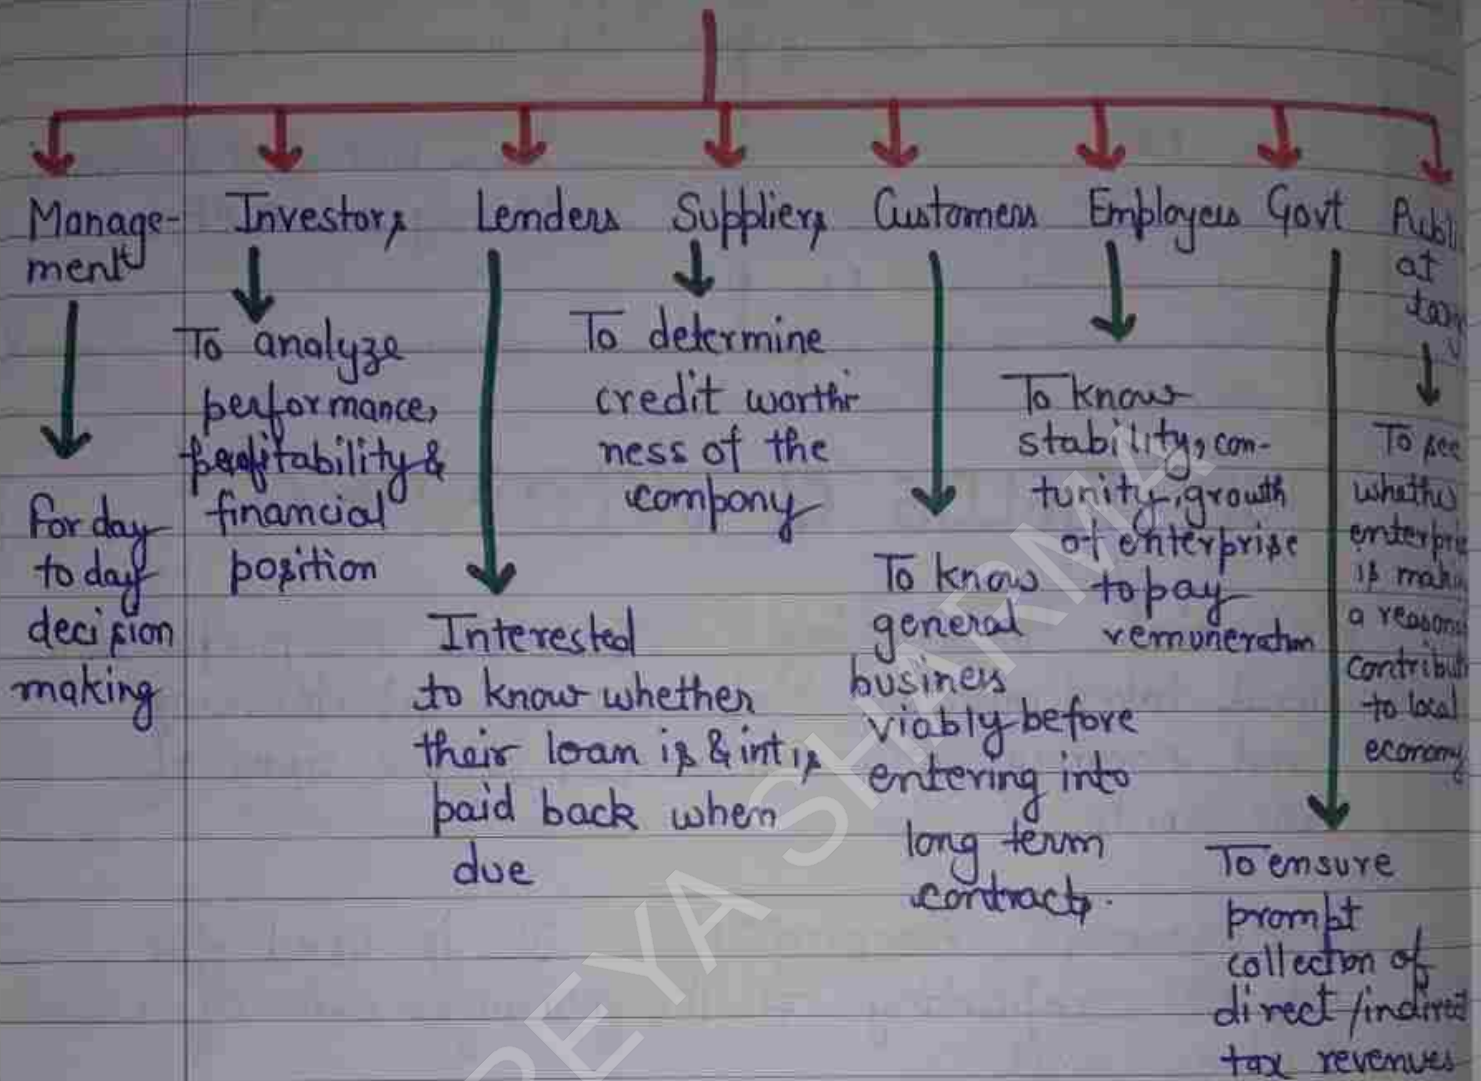 Manage-
ment
For day
to day
decision
making
Investors
To analyze
performance,
profitability &
financial
position
Lenders
Interested
to know whether
their loan is & int is
paid back when
due
Suppliers
To determine
credit worthi
ness of the
company
Customers
To know
general
business
viably before
entering into
long term
contracts.
Employees
To know
stability, con-
tunity, growth
of enterprise
to pay
remuneration
Govt
To ensure
prompt
collection of
direct / indirect
tax revenues
Publi
at
To see
whether
enterpre
is makin
a reasona
contributi
to local
economy
REYA SHARMA